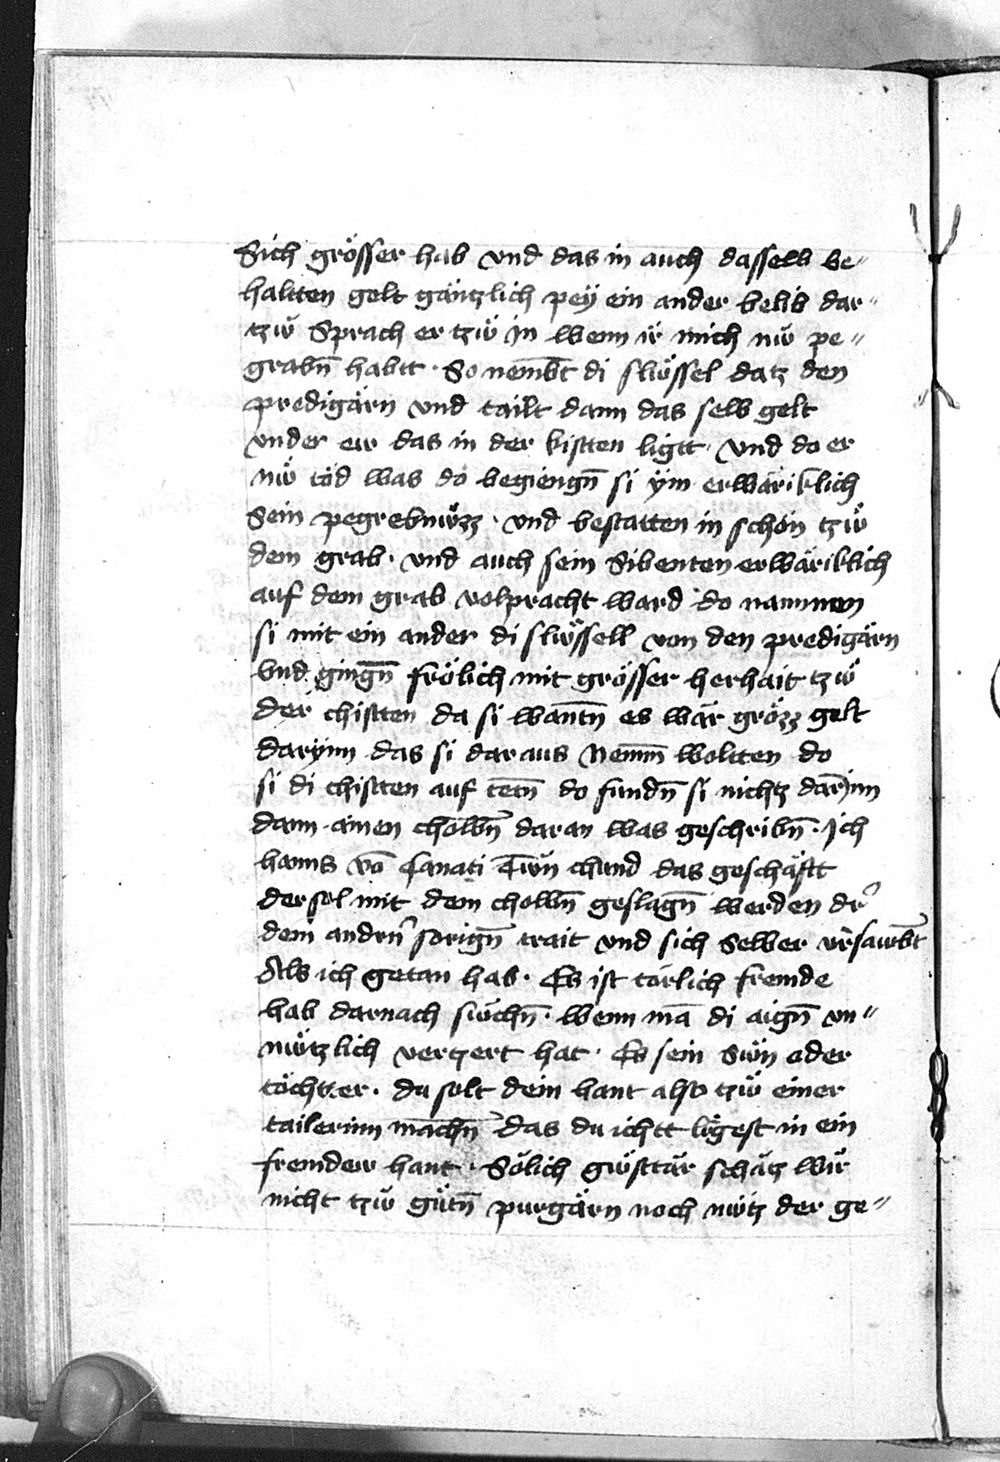 Sich grösser hab vnd das in auch dasselb be〃
haltten gelt gäntzlich pey ein ander belib dar〃
tzw̎ Sprach er tzw̎ in wenn ir mich nw̎ pe〃
grabn̄ habtt · So nembt di slüssel datz den
predigärn vnd tailt dann das selb gelt
vnder eir das in der kistten ligtt · Vnd do er
nw̎ töd was do begiengn̄ si ym erwäriklich
Sein pegrebnw̎zz · vnd bestatten in schon tzw̎
dem grab · vnd auch sein Sibenten erwäriklich
auf dem grab volpracht ward · do nammen
si mit ein ander di slw̎ssell von den predigärn
Vnd gingn̄ frölich mit grösser herhait tzw̎
der chistten da si wantn̄ es wär grözz gelt
darynn das si daraus Nemm̄ woltten do
si di chistten auf tetn̄ do fundn̄ si nichtz darinn
dann ainen cholbn̄ daran was geschribn̄ · Ich
hanns vō Canati Tw̎n chund das geschäftt
der sol mit dem cholbn̄ geslagn̄ werden dr̄
dem andrn̄ sorign̄ trait vnd sich Selber v̄rsawbt
Als ich getan hab · Es ist törlich fremde
hab darnach sw̎chn̄ · wenn mā di aign̄ vn〃
nw̎tzlich vertzert hat · Es sein Sw̎n oder
töchter · du solt dein hant also tzw̎ einer
tailerinn machn̄ das du ichtt lögest in ein
fremdew hant · Sölich grösttär schätz wir
nicht tzw̎ gütn̄ purgärn noch nw̎tz der ge〃